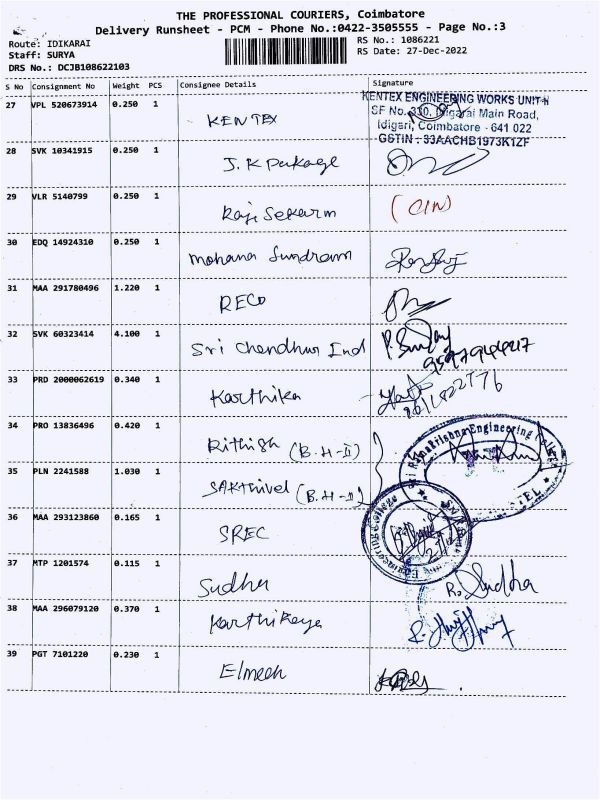 THE PROFESSIONAL COURIERS, Coimbatore
Delivery Runsheet - PCM - Phone No.:0422-3505555 - Page No.:3
Route: IDIKARAI
RS No.: 1086221
Staff: SURYA
RS Date: 27-Dec-2022
DRS No.: DCJB108622103
S No Consignment No Weight PCS Consignee Details Signature
27 VPL 520673914 0.250 1 KENTEX
KENTEX ENGINEERING WORKS UNIT-II
SF No. 330, Idigarai Main Road,
Idigari, Coimbatore - 641 022
GSTIN : 33AACHB1973K1ZF
28 SVK 10341915 0.250 1 J.K Pakage
29 VLR 5140799 0.250 1 Raji Sekarm
30 EDQ 14924310 0.250 1 Mohana Sundram
31 MAA 291780496 1.220 1 RECO
32 SVK 60323414 4.100 1 Sri Chendhur Ind
33 PRD 2000062619 0.340 1 Karthika
34 PRO 13836496 0.420 1 Rithish (B.H-II)
35 PLN 2241588 1.030 1 SAKthivel (B.H-II)
36 MAA 293123860 0.165 1 SREC
37 MTP 1201574 0.115 1 Sudha R. Sudha
38 MAA 296079120 0.370 1 Karthikeya
39 PGT 7101220 0.230 1 Elmech